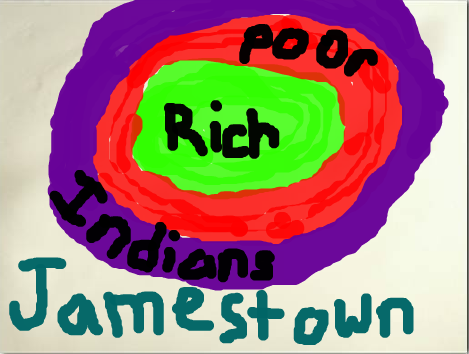 poor
Rich
Indians
Jamestown